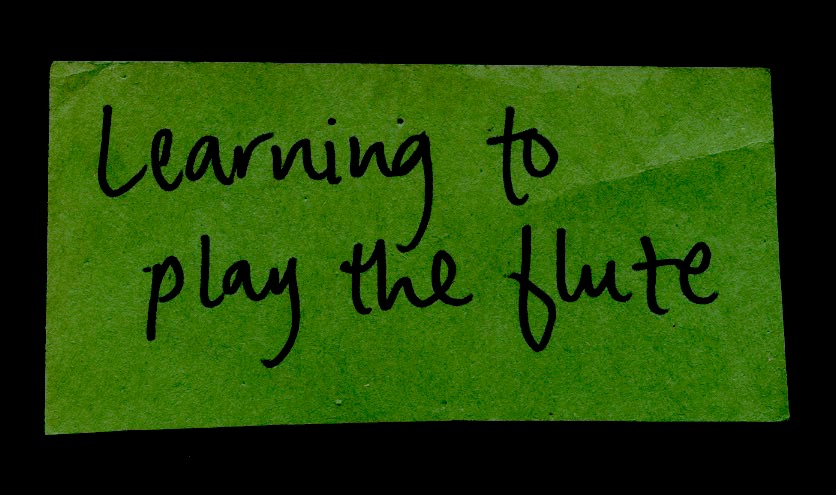 Learning to
play the flute